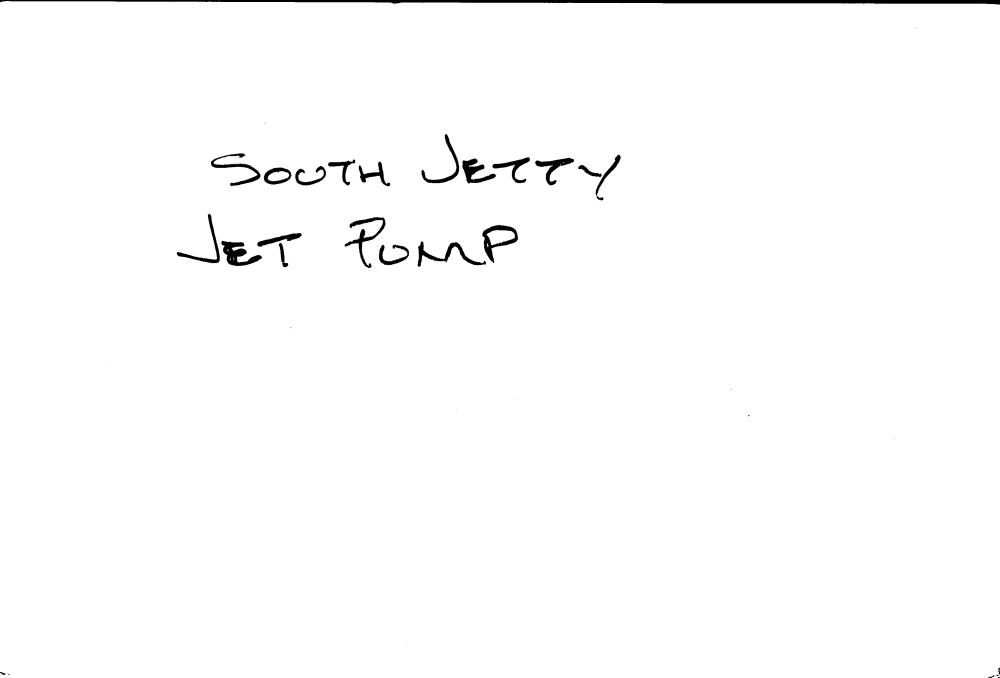 SOUTH JETTY
JET PUMP